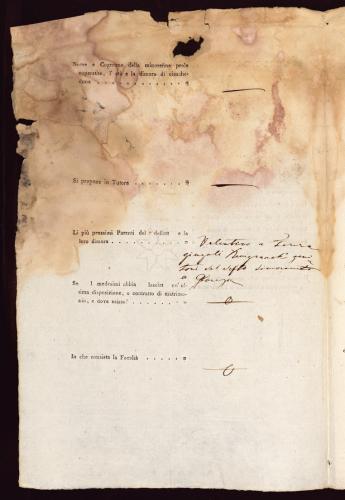 Nome e Cognome della minorenne prole
superstite, l'età e la dimora di ciasche-
duno
Si propone in Tutore
Li più prossimi Parenti del defunto e la
loro dimora
Valentino e Teresa
del defto dimoranti
a
Se i medesimi abbia lasciat un'ul-
tima disposizione, o contratto di matrimo-
nio, e dove esista?
o
In che consista la Facoltà
o